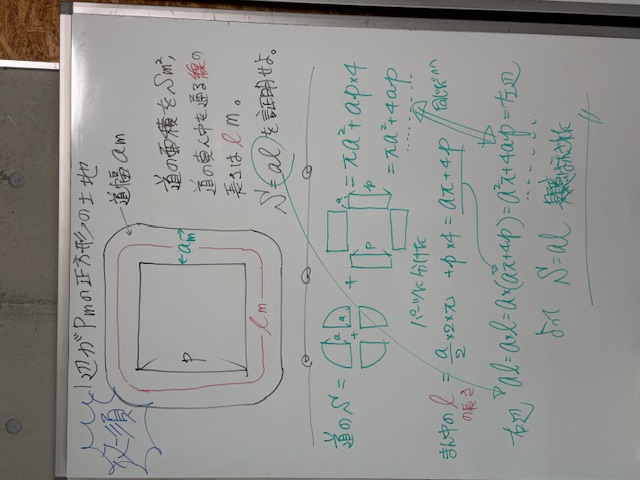 必須
一辺がPmの正方形の土地
道幅am
道の面積をSm²,
道の真ん中を通る線の
長さはlm。
S=alを証明せよ。
am
P
lm
道のS = a a a + P a P = πa²+ap×4
= πa²+4ap
パーツに分けた
同じだ
まん中のlの長さ = a/2×2×π+p×4 = aπ+4p
右辺 al=a×l=a×(aπ+4p)=a²π+4ap=左辺
よって S=al